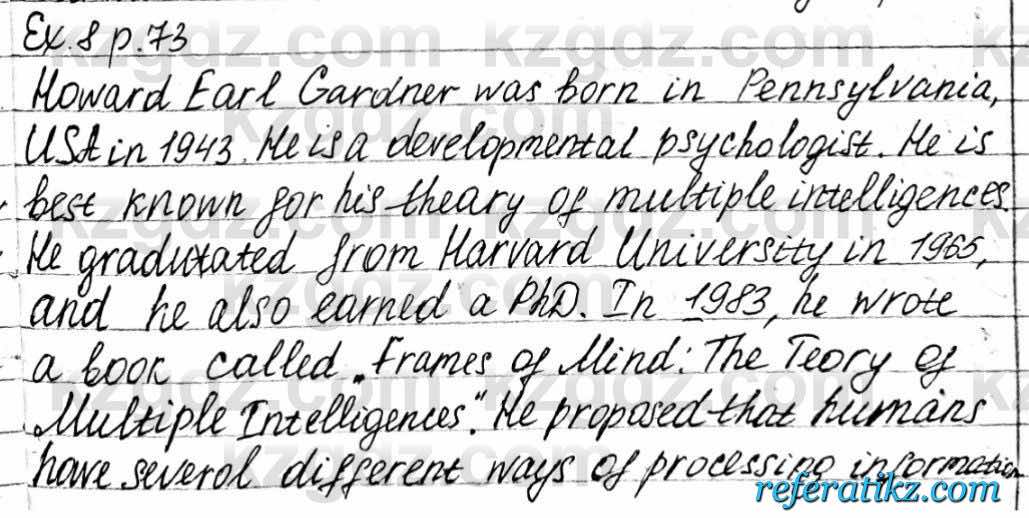 Ex. 8 p. 73
Howard Earl Gardner was born in Pennsylvania,
USA in 1943. He is a developmental psychologist. He is
best known for his theary of multiple intelligences.
He gradutated from Harvard University in 1965,
and he also earned a PhD. In 1983, he wrote
a book called „Frames of Mind: The Teory of
Multiple Intelligences“. He proposed that humans
have severol different ways of processing information
referatikz.com